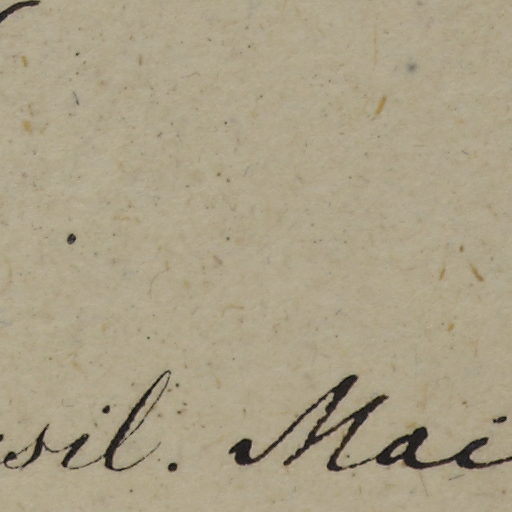 sil. Mai